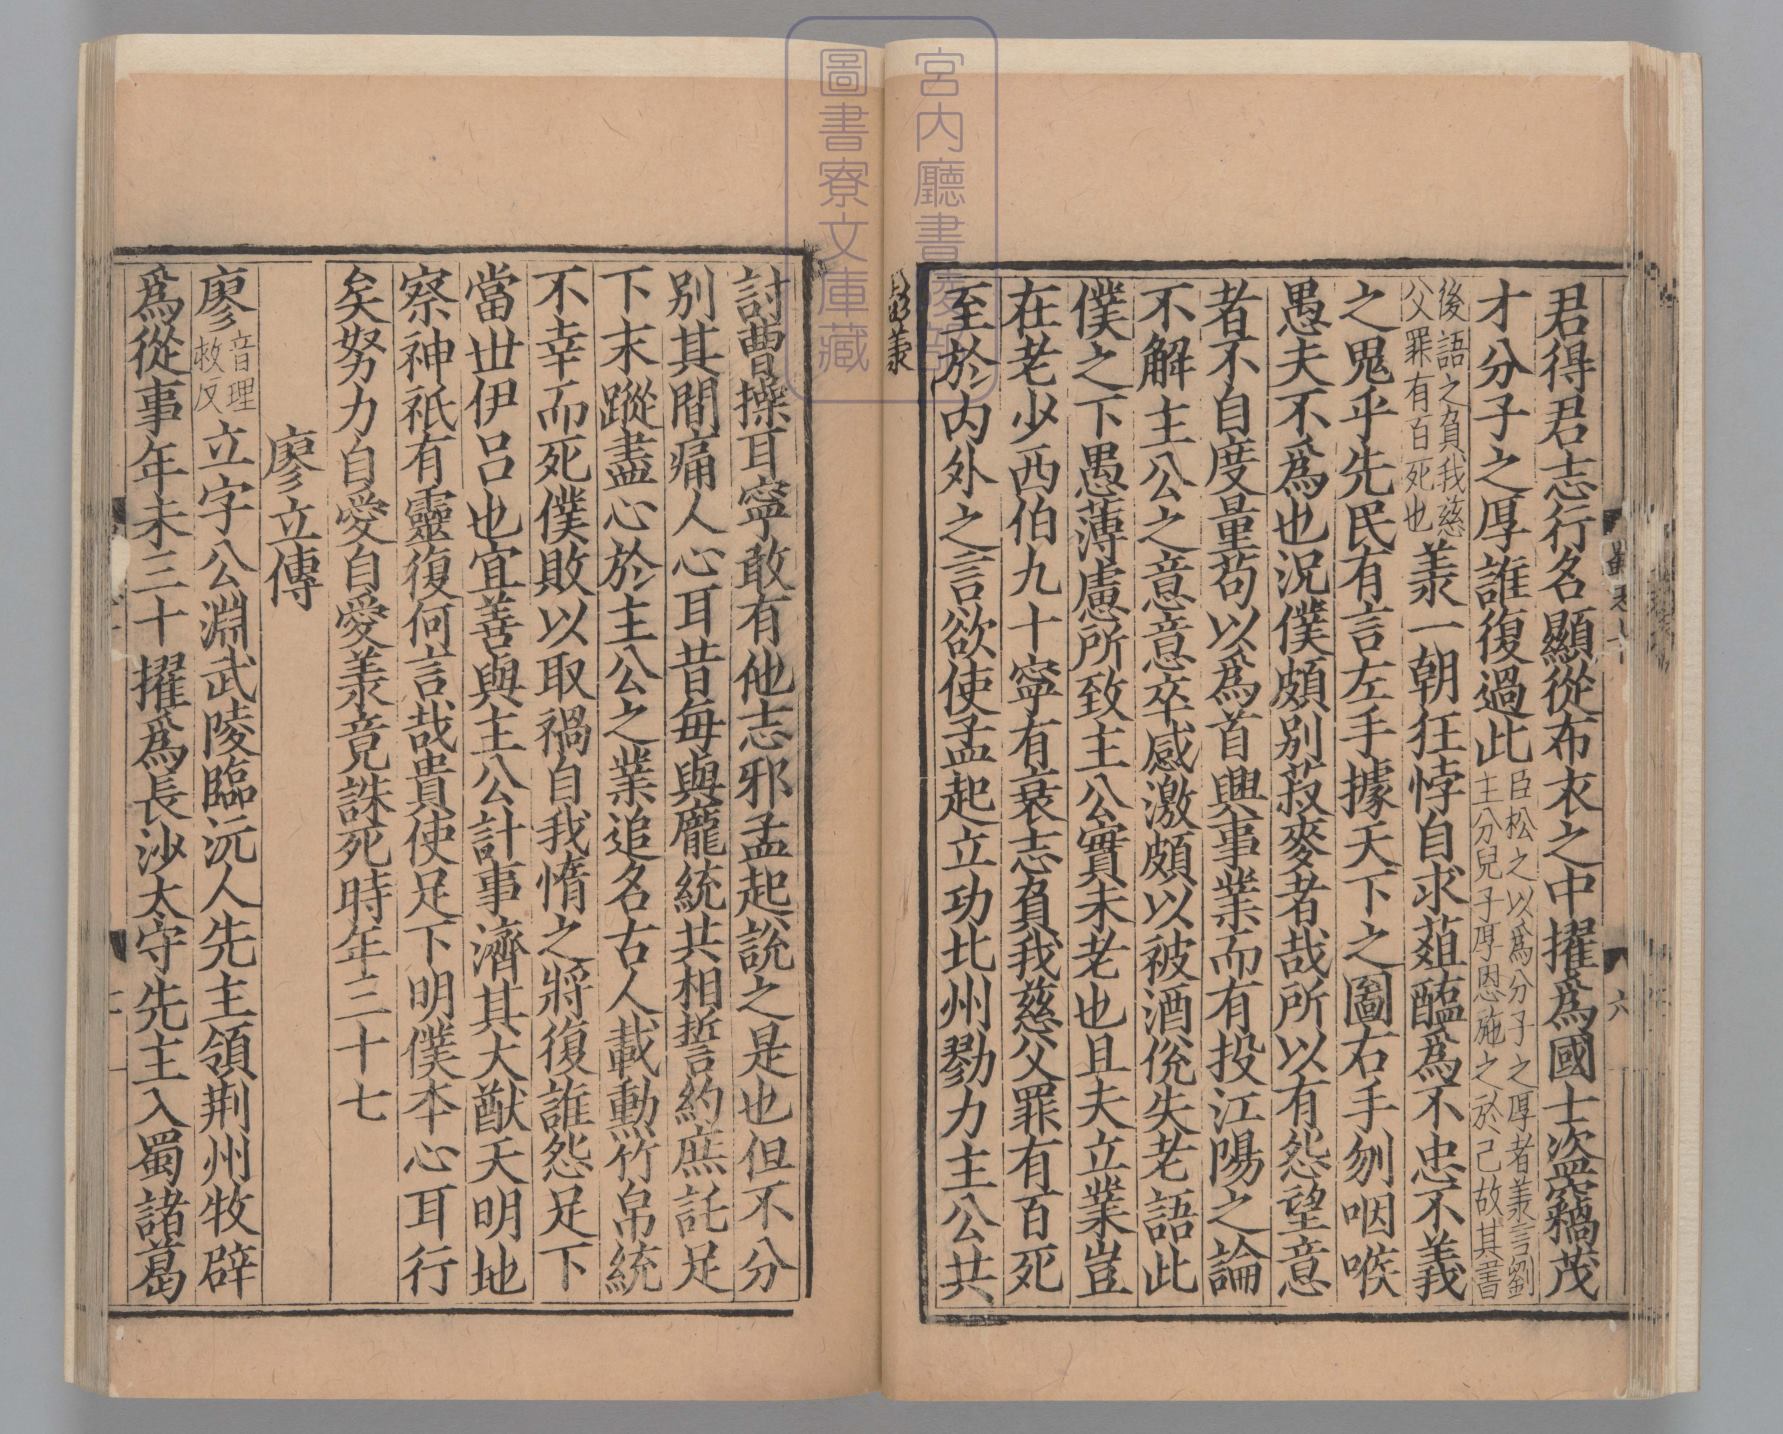 君得君志行名顯從布衣之中擢爲國士盗竊茂
才分子之厚誰復過此臣松之以爲分子之厚者羕言劉主分兒子厚恩施之於己故其書
後語之負我慈父罪有百死也羕一朝狂悖自求葅醢爲不忠不義
之鬼乎先民有言左手據天下之圖右手刎咽喉
愚夫不爲也況僕頗別菽麥者哉所以有怨望意
者不自度量苟以爲首興事業而有投江陽之論
不解主公之意意卒感激頗以被酒侻失老語此
僕之下愚薄慮所致主公實未老也且夫立業豈
在老少西伯九十寧有衰志負我慈父罪有百死
至於内外之言欲使孟起立功北州勠力主公共
彭羕
討曹操耳寧敢有他志邪孟起說之是也但不分
別其間痛人心耳昔每與龐統共相誓約庶託足
下末蹤盡心於主公之業追名古人載勳竹帛統
不幸而死僕敗以取禍自我惰之將復誰怨足下
當世伊吕也宜善與主公計事濟其大猷天明地
察神祇有靈復何言哉貴使足下明僕本心耳行
矣努力自愛自愛羕竟誅死時年三十七
廖立傳
廖音理救反立字公淵武陵臨沅人先主領荆州牧辟
爲從事年未三十擢爲長沙太守先主入蜀諸葛
六
宮内廳書陵部
圖書寮文庫藏